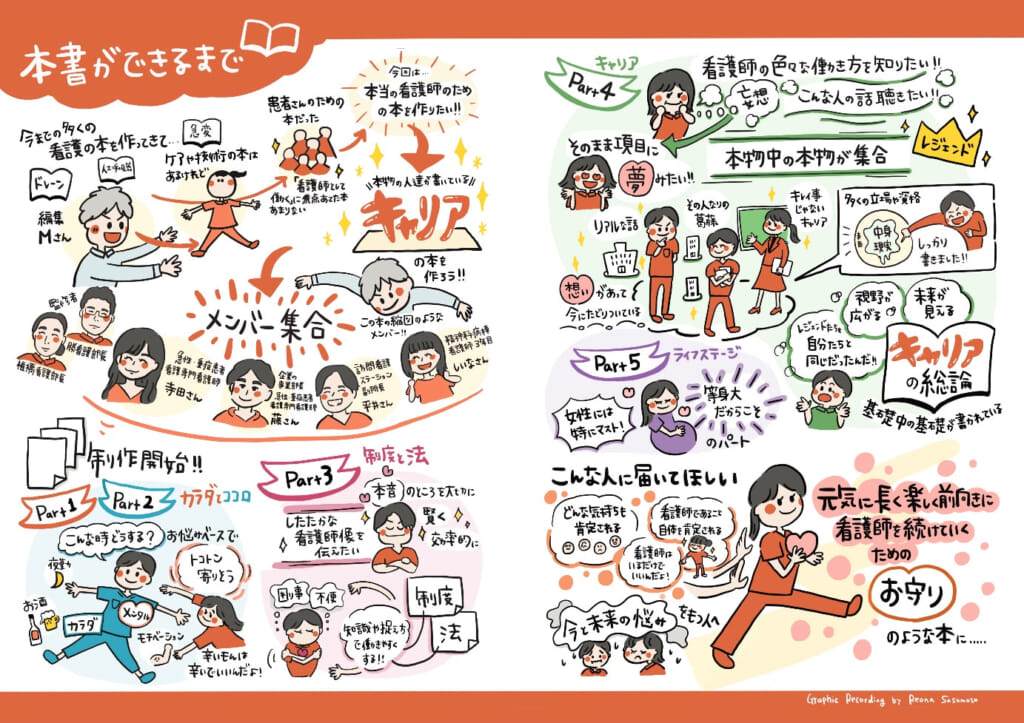 本書ができるまで
今までの多くの
看護の本を作ってきて…
ドレーン
人工呼吸器
急変
ケアや技術の本は
あるけれど
編集
Mさん
患者さんのための
本だった
「看護師として
働く」に焦点あてた本
あまりない
今回は…
本当の看護師のため
の本を作りたい!!
本物の人達が書いている
キャリア
の本を
作ろう!!
メンバー集合
この本の縮図のような
メンバー!!
監修者
勝看護部長
椎橋看護部長
急性・重症患者
看護専門看護師
寺田さん
企業の
事業部長
急性・重症患者
看護専門看護師
藤さん
訪問看護
ステーション
副所長
平井さん
精神科病棟
看護師3年目
いいなさん
制作開始!!
Part1
Part2
カラダとココロ
こんな時どうする?
お悩みベースで
トコトン
寄りそう
夜勤
お酒
カラダ
メンタル
モチベーション
辛いもんは
辛いでいいんだよ!
Part3
制度と法
本音のところを大切に
したたかな
看護師像を
伝えたい
賢く
効率的に
困り事
不便
知識や捉え方
で働きやすく
する!!
制度
法
キャリア
Part4
看護師の色々な働き方を知りたい!!
妄想
こんな人の話聴きたい!!
そのまま項目に
夢みたい!!
本物中の本物が集合
レジェンド
リアルな話
その人なりの
葛藤
キレイ事
じゃない
キャリア
多くの立場や資格
中身
現実
しっかり
書きました!!
想いがあって
今にたどりついている
視野が
広がる
未来が
見える
レジェンドたちも
自分たちと
同じだったんだ!!
キャリア
の総論
基礎中の基礎が書かれている
Part5
ライフステージ
女性には
特にマスト!
等身大
だからこそ
のパート
こんな人に届いてほしい
どんな気持ちも
肯定される
看護師であること
自体を肯定される
看護師は
いるだけで
いいんだよ!
今と未来の悩み
をもつ人へ
元気に長く楽しく前向きに
看護師を続けていく
ための
お守り
のような本に.....
Graphic Recording by Reona Sasamoto